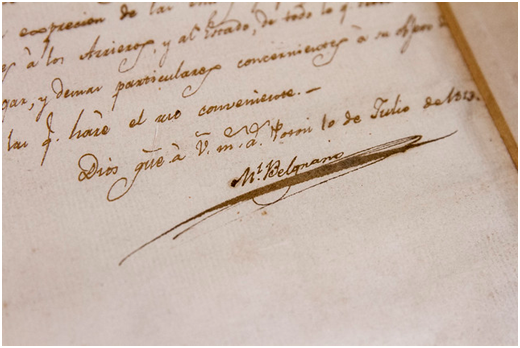 exprecion de las
es à los Arrieros, y al Estado, de todo lo q.
gar, y demas particulares concernientes à su
las q. haré el uso conveniente.—
Dios gue. à V. m. a. Potosi 10 de Julio de 1813.
Ml. Belgrano